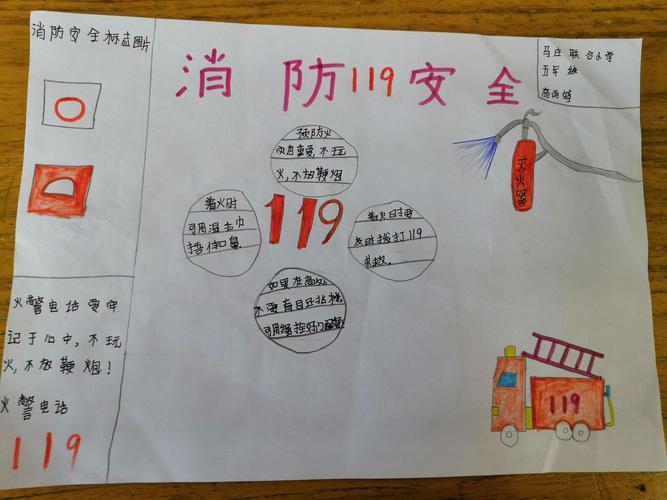 消防安全标志图片
消防119安全
马庄联合小学
五年级
预防火
灾很重要,不玩
火,不放鞭烟
着火时
可用湿毛巾
捂住口鼻
119
着火时拨
及时拨打119
求救。
如果在高处
不要盲目
灭火器
火警电话要牢
记于心中,不玩
火,不放鞭烟!
火警电话
119
119